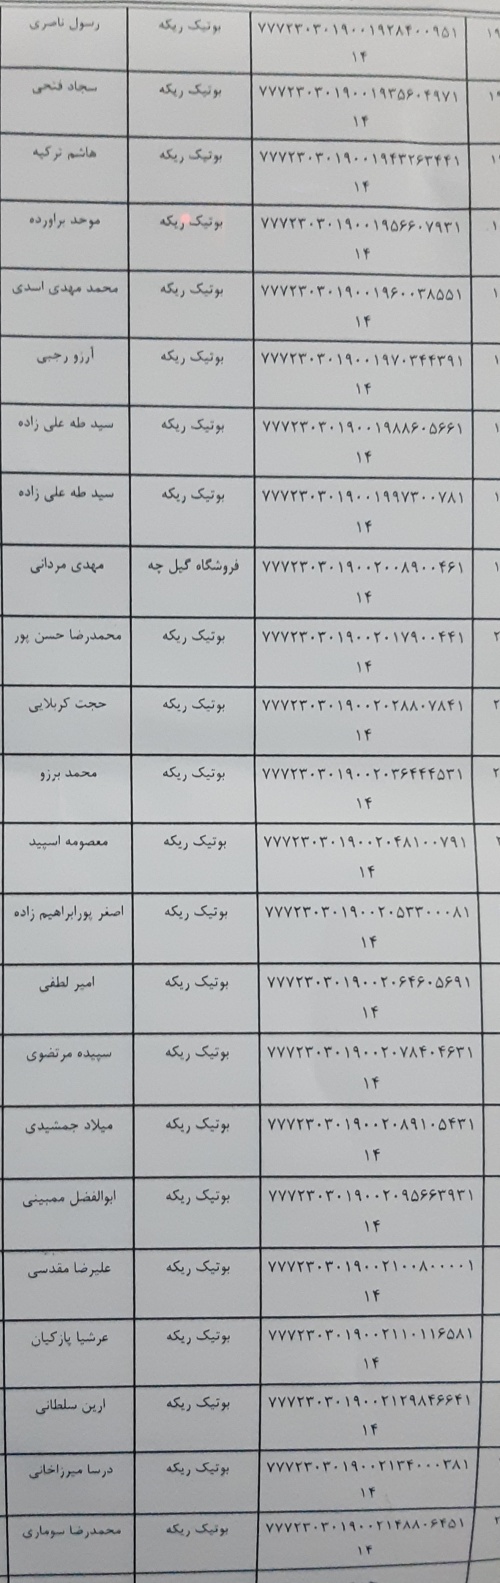 ۷۷۷۲۳۰۳۰۱۹۰۰۱۹۲۸۴۰۰۹۵۱ بوتیک ریکه رسول ناصری
۱۴
۷۷۷۲۳۰۳۰۱۹۰۰۱۹۳۵۶۰۴۹۷۱ بوتیک ریکه سجاد فتحی
۱۴
۷۷۷۲۳۰۳۰۱۹۰۰۱۹۴۳۲۶۳۴۴۱ بوتیک ریکه هاشم ترکیه
۱۴
۷۷۷۲۳۰۳۰۱۹۰۰۱۹۵۶۶۰۷۹۳۱ بوتیک ریکه موحد براورده
۱۴
۷۷۷۲۳۰۳۰۱۹۰۰۱۹۶۰۰۳۸۵۵۱ بوتیک ریکه محمد مهدی اسدی
۱۴
۷۷۷۲۳۰۳۰۱۹۰۰۱۹۷۰۳۴۴۳۹۱ بوتیک ریکه آرزو رجبی
۱۴
۷۷۷۲۳۰۳۰۱۹۰۰۱۹۸۸۶۰۵۶۶۱ بوتیک ریکه سید طه علی زاده
۱۴
۷۷۷۲۳۰۳۰۱۹۰۰۱۹۹۷۳۰۰۷۸۱ بوتیک ریکه سید طه علی زاده
۱۴
۷۷۷۲۳۰۳۰۱۹۰۰۲۰۰۸۹۰۰۴۶۱ فروشگاه گیل چه مهدی مردانی
۱۴
۷۷۷۲۳۰۳۰۱۹۰۰۲۰۱۷۹۰۰۴۴۱ بوتیک ریکه محمدرضا حسن پور
۱۴
۷۷۷۲۳۰۳۰۱۹۰۰۲۰۲۸۸۰۷۸۴۱ بوتیک ریکه حجت کربلایی
۱۴
۷۷۷۲۳۰۳۰۱۹۰۰۲۰۳۶۴۴۴۵۳۱ بوتیک ریکه محمد برزو
۱۴
۷۷۷۲۳۰۳۰۱۹۰۰۲۰۴۸۱۰۰۷۹۱ بوتیک ریکه معصومه اسپید
۱۴
۷۷۷۲۳۰۳۰۱۹۰۰۲۰۵۳۳۰۰۰۸۱ بوتیک ریکه اصغر پورابراهیم زاده
۱۴
۷۷۷۲۳۰۳۰۱۹۰۰۲۰۶۴۶۰۵۶۹۱ بوتیک ریکه امیر لطفی
۱۴
۷۷۷۲۳۰۳۰۱۹۰۰۲۰۷۸۴۰۴۶۳۱ بوتیک ریکه سپیده مرتضوی
۱۴
۷۷۷۲۳۰۳۰۱۹۰۰۲۰۸۹۱۰۵۴۳۱ بوتیک ریکه میلاد جمشیدی
۱۴
۷۷۷۲۳۰۳۰۱۹۰۰۲۰۹۵۶۶۳۹۳۱ بوتیک ریکه ابوالفضل ممبینی
۱۴
۷۷۷۲۳۰۳۰۱۹۰۰۲۱۰۰۸۰۰۰۰۱ بوتیک ریکه علیرضا مقدسی
۱۴
۷۷۷۲۳۰۳۰۱۹۰۰۲۱۱۰۱۱۶۵۸۱ بوتیک ریکه عرشیا پازکیان
۱۴
۷۷۷۲۳۰۳۰۱۹۰۰۲۱۲۹۸۴۶۶۴۱ بوتیک ریکه ارین سلطانی
۱۴
۷۷۷۲۳۰۳۰۱۹۰۰۲۱۳۴۰۰۰۳۸۱ بوتیک ریکه درسا میرزاخانی
۱۴
۷۷۷۲۳۰۳۰۱۹۰۰۲۱۴۸۸۰۶۴۵۱ بوتیک ریکه محمدرضا سوماری
۱۴